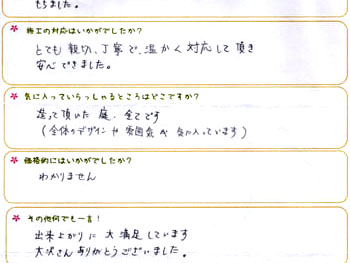 もちました。
施工の対応はいかがでしたか?
とても親切、丁寧で、温かく対応して頂き
安心できました。
気に入っていらっしゃるところはどこですか?
造って頂いた庭、全てです
(全体のデザインや雰囲気が気に入っています)
価格的にはいかがでしたか?
わかりません
その他何でも一言!
出来上がりに大満足しています
大沢さんありがとうございました。